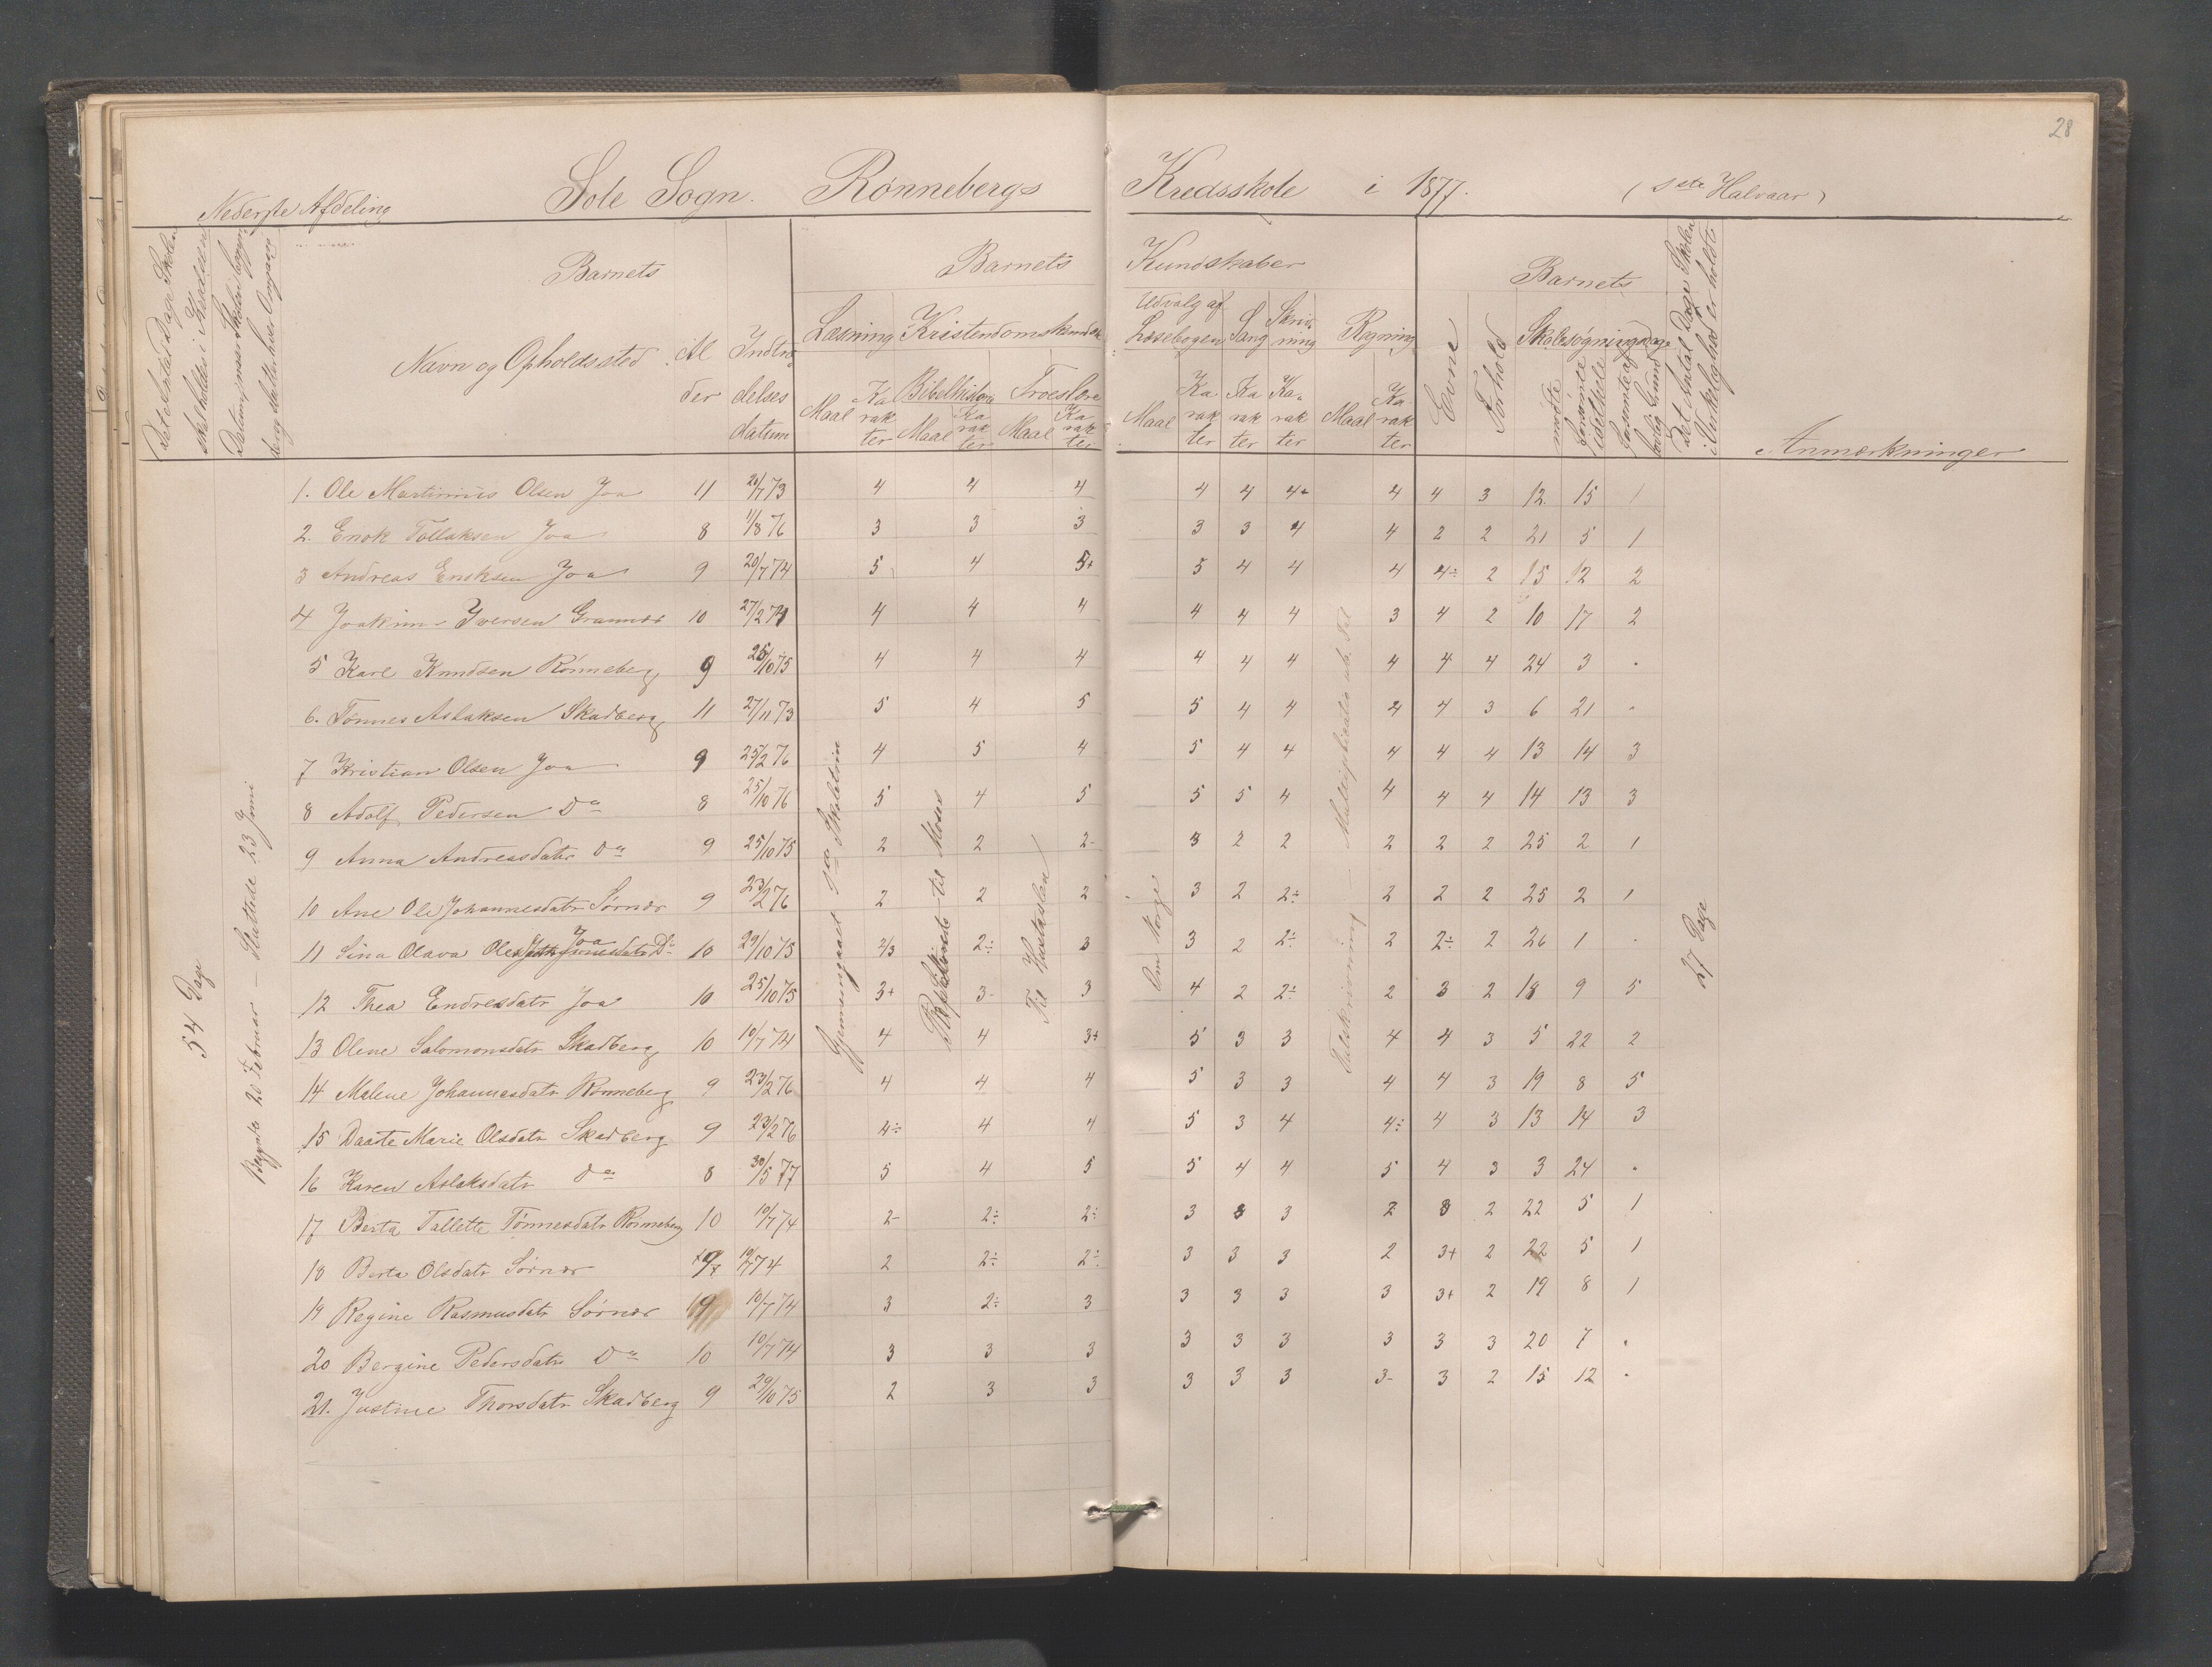 28
Sole Sogn. Rønnebergs Kredsskole i 1877. (1ste Halvaar)
Nederste Afdeling
Det Antal Dage Skolen skal holdes i Kredsen
Barnets
Navn og Opholdssted
Alder
Indtrædelsesdatum
Barnets Kundskaber
Læsning
Kristendomskundskab
Bibelhistorie
Troeslære
Maal
Karakter
Maal
Karakter
Maal
Karakter
Udvalg af Læsebogen
Sang
Skrivning
Regning
Maal
Karakter
Karakter
Karakter
Maal
Karakter
Barnets
Evne
Forhold
Skolesøgningsdage
mødte
forsømte i det hele
forsømte af lovlig Grund
Det Antal Dage Skolen i Virkelighed er holdt
Anmærkninger
54 Dage
Begyndte 20 Februar — Sluttede 23 Juni
Til Moses
Om Norge
Talskrivning — Multiplikation
27 Dage
1. Ole Martinius Olsen Joa 11 20/7 73 4 4 4 4 4 4+ 4 4 3 12 15 1
2. Enok Tollaksen Joa 8 1/8 76 3 3 3 3 3 4 4 2 2 21 5 1
3 Andreas Enoksen Joa 9 20/7 74 5 4 5+ 5 4 4 4 4÷ 2 15 12 2
4 Joakim Iversen Grannes 10 27/2 74 4 4 4 4 4 4 3 4 2 10 17 2
5 Karl Knudsen Rønneberg 9 25/10 75 4 4 4 4 4 4 4 4 4 24 3 .
6. Tønnes Aslaksen Skadberg 11 27/11 73 5 4 5 5 4 4 4 4 3 6 21 .
7 Kristian Olsen Joa 9 25/2 76 4 5 4 5 4 4 4 4 4 13 14 3
8 Adolf Pedersen Do 8 25/10 76 5 4 5 5 5 4 4 4 4 14 13 3
9 Anna Andreasdatr do 9 25/10 75 2 2 2- 3 2 2 2 2 2 25 2 1
10 Ane Ole Johannesdatr Sørnes 9 23/2 76 2 2 2 3 2 2÷ 2 2 2 25 2 1
11 Sina Olava Joa Do 10 29/10 75 2/3 2÷ 3 3 2 2÷ 2 2÷ 2 26 1 .
12 Thea Endresdatr Joa 10 25/10 75 3+ 3- 3 4 2 2÷ 2 3 2 18 9 5
13 Olene Salomonsdatr Skadberg 10 10/7 74 4 4 3+ 5 3 3 4 4 3 5 22 2
14 Malene Johannesdatr Rønneberg 9 23/2 76 4 4 4 5 3 3 4 4 3 19 8 5
15 Daate Marie Olsdatr Skadberg 9 23/2 76 4÷ 4 4 5 3 4 4÷ 4 3 13 14 3
16 Karen Aslaksdatr do 8 30/5 77 5 4 5 5 4 4 5 4 3 3 24 .
17 Berta Tallette Tønnesdatr Rønneberg 10 10/7 74 2- 2÷ 2÷ 3 3 3 2 3 2 22 5 1
18 Berta Olsdatr Sørnes 9 10/7 74 2 2÷ 2÷ 3 3 3 2 3+ 2 22 5 1
19 Regine Rasmusdatr Sørnes 9 10/7 74 3 2÷ 3 3 3 3 3 3+ 2 19 8 1
20 Bergine Pedersdatr Do 10 10/7 74 3 3 3 3 3 3 3 3 3 20 7 .
21. Justine Thorsdatr Skadberg 9 29/10 75 2 3 3 3 3 3 3- 3 2 15 12 .